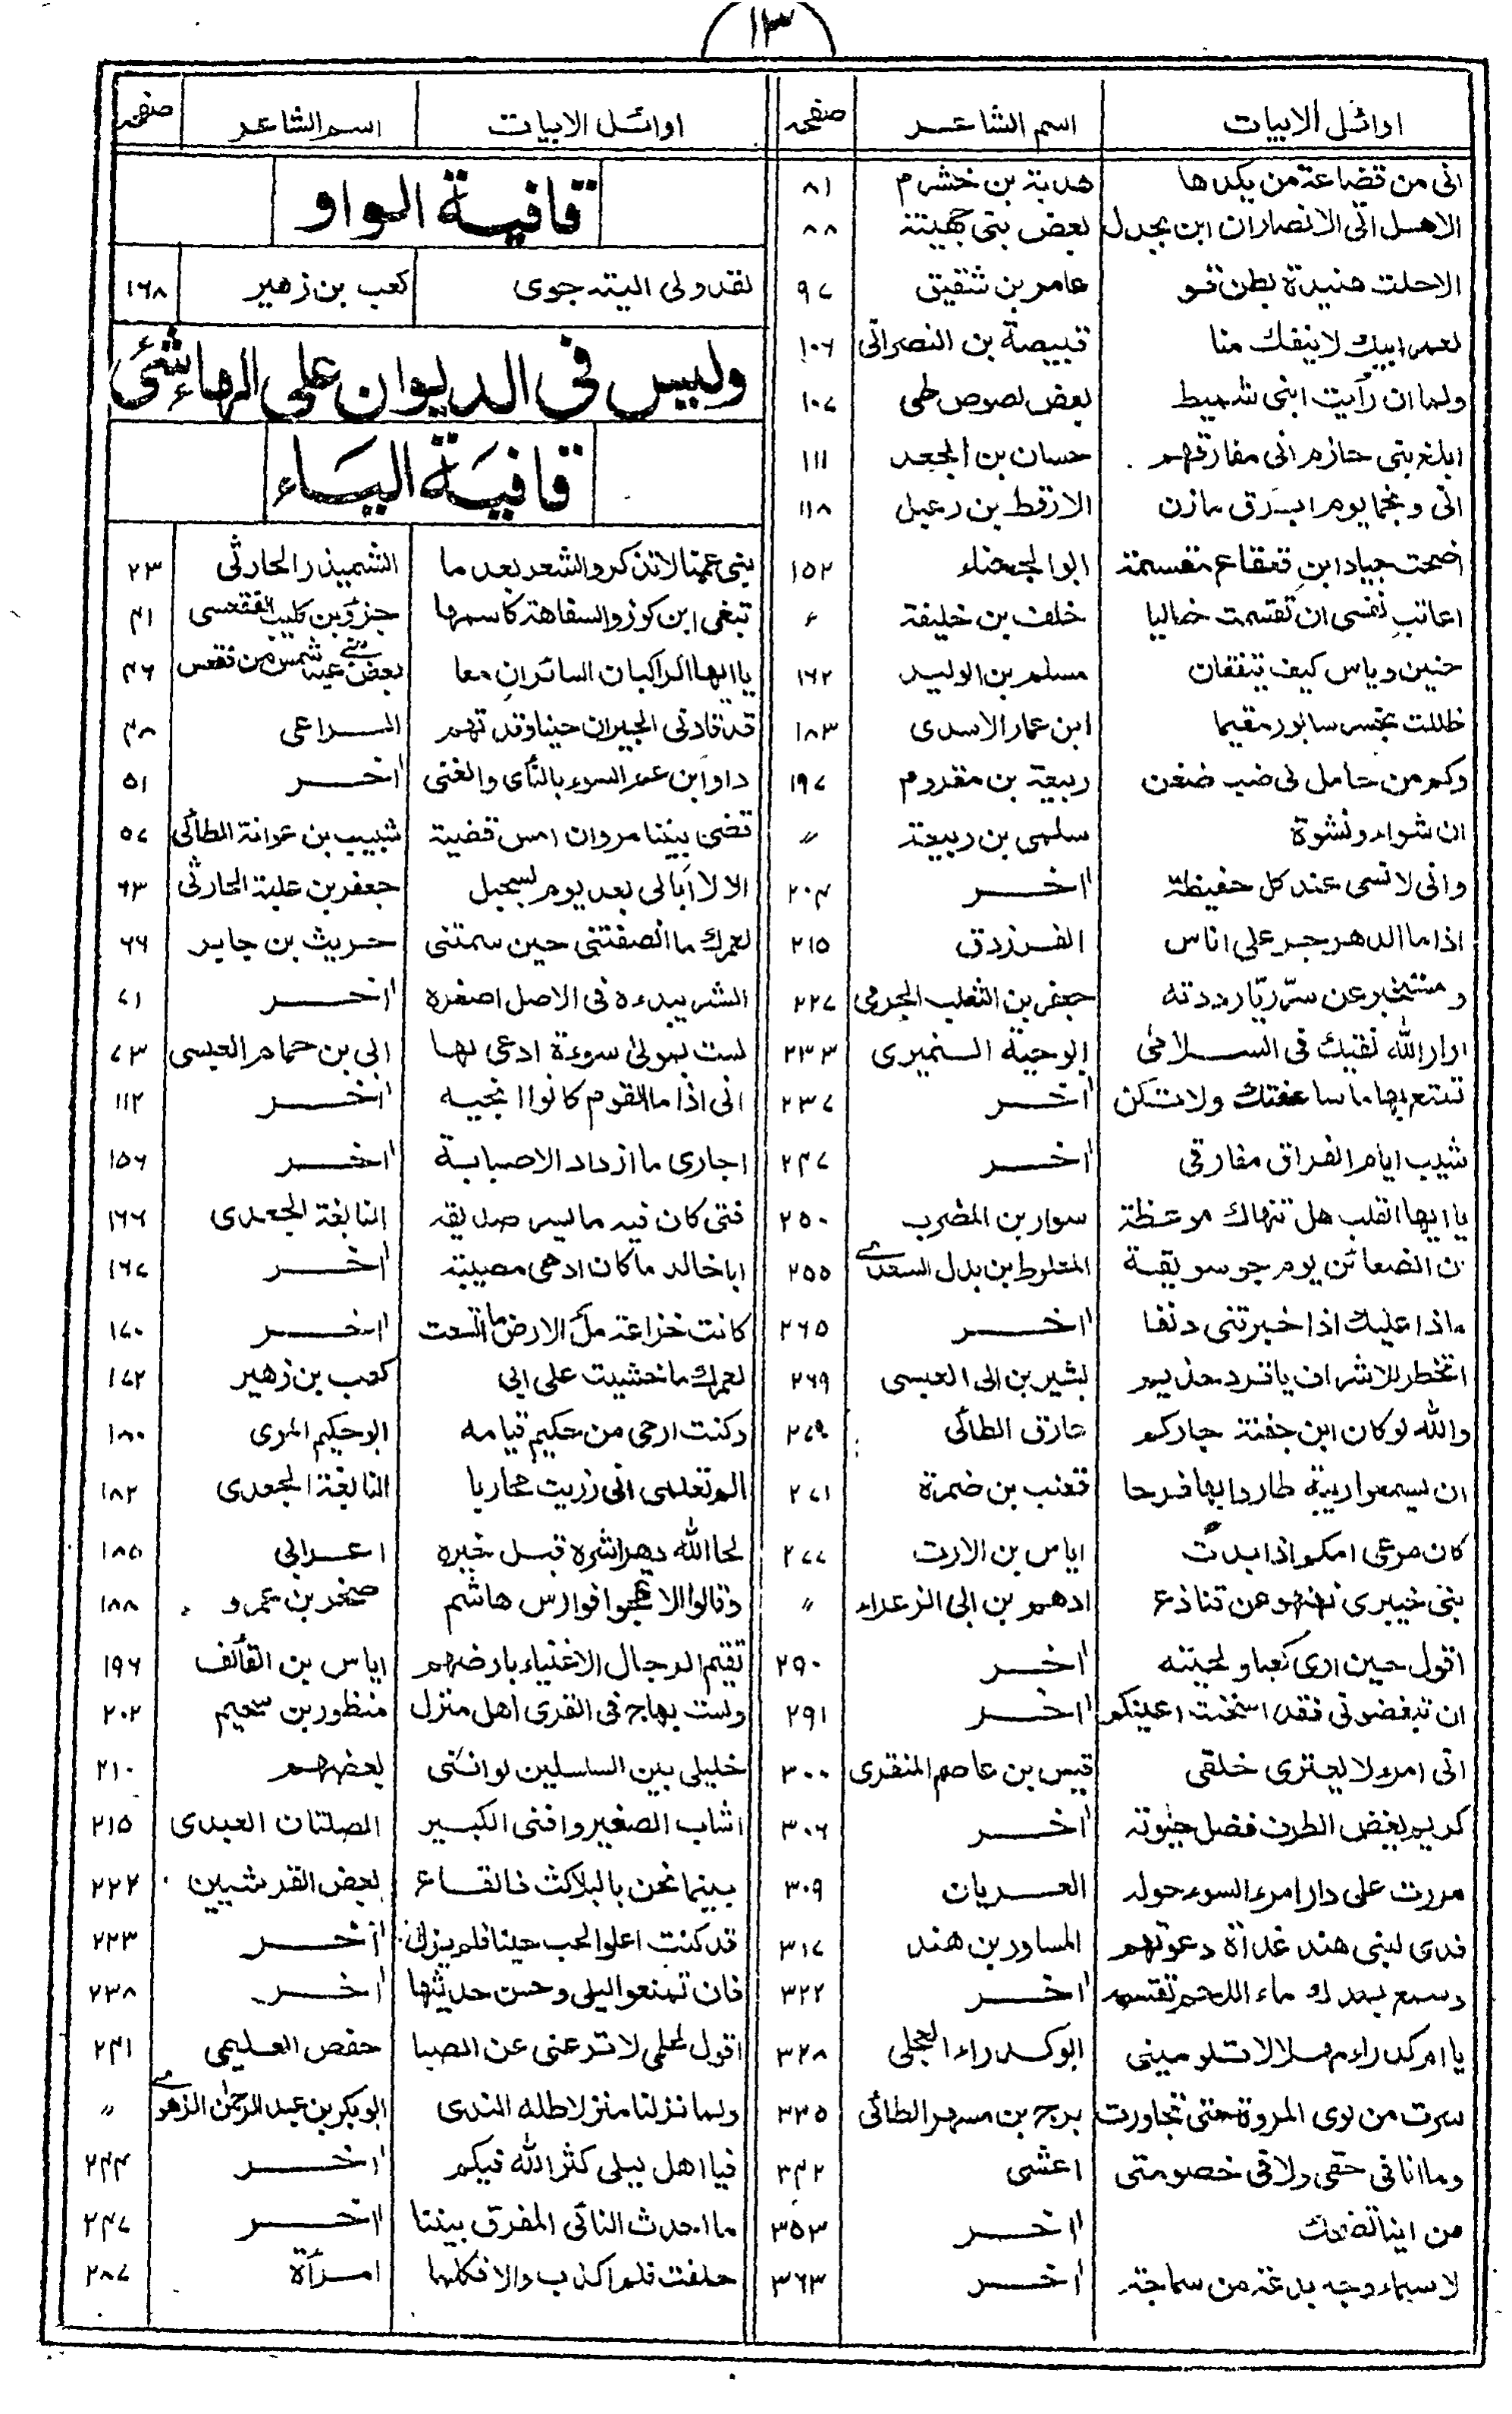 ١٣
اوائل الابيات اسم الشاعر صفحه
انى من قضاعة من يكدها هدبة بن خشرم ٨١
الاهل اتى الانصاران ابن بجدل بعض بنى جهينة ٨٨
الاحلت هنيدة بطن قو عامر بن شقيق ٩٧
لعمر ابيك لا ينفك منا قبيصة بن النصرانى ١٠٦
ولما ان رأيت ابنى شميط بعض لصوص طى ١٠٧
ابلغ بنى حازم انى مفارقهم حسان بن الجعد ١١١
انى ونجما يوم ابرق مازن الارقط بن رعبل ١١٨
اضحت جياد ابن قعقاع مقسمة ابو الحجناء ١٥٢
اعاتب نفسى ان تقسمت خاليا خلف بن خليفة ء
حنين وياس كيف يتفقان مسلم بن الوليد ١٦٢
ظللت بخسر سابور مقيما ابن عمار الاسدى ١٨٣
وكم من حامل لى ضب ضغن ربيعة بن مقروم ١٩٧
ان شواء ونشوة سلمى بن ربيعة 〃
وانى لا نسى عند كل حفيظة اخر ٢٠٤
اذا ما الدهر جر على اناس الفرزدق ٢١٥
ومستخبر عن سر ريا رددته جعفر بن الثعلب الجرمى ٢٢٧
ارار الله نقيك فى السلامى ابو حية النميرى ٢٣٣
تمتع بها ما ساعفتك ولا تكن اخر ٢٣٧
شيب ايام الفراق مفارقى اخر ٢٤٧
يا ايها القلب هل تنهاك موعظة سوار بن المضرب ٢٥٠
ن الضعائن يوم جو سويقة المعلوط بن بدل السعدى ٢٥٥
ماذا عليك اذا خبرتنى دنفا اخر ٢٦٥
اتخطر للاشراف يا قرد حذيم بشير بن ابى العبسى ٢٦٩
والله لو كان ابن جفنة جاركم عارق الطائى ٢٧٩
ان يسمعوا ريبة طاروا بها فرحا قعنب بن ضمرة ٢٧١
كان مرعى امكم اذا بدت اياس بن الارت ٢٧٧
بنى خيبرى نهنهوا عن قناذع ادهم بن ابى الزعراء 〃
اقول حين ارى كعبا ولحيته اخر ٢٩٠
ان تبغضونى فقد اسخنت اعينكم اخر ٢٩١
انى امرء لا يعترى خلقى قيس بن عاصم المنقرى ٣٠٠
كريم يغض الطرف فضل حيوته اخر ٣٠٦
مررت على دار امرء السوء حوله العريان ٣٠٩
فدى لبنى هند غداة دعوتهم المساور بن هند ٣١٧
وسبع بمدك ماء اللحم تقسمه اخر ٣٢٢
يا ام كدراء مهلا لا تلومينى ابو كدراء العجلى ٣٢٨
سرت من لوى المروة حتى تجاورت برج بن مسهر الطائى ٣٣٥
وما انا فى حقى ولا فى خصومتى اعشى ٣٤٢
من اينا تضحك اخر ٣٥٣
لا سيماء وجه بدعة من سماجة اخر ٣٦٣
اوائل الابيات اسم الشاعر صفحه
قافية الواو
لقد ولى اليته جوى كعب بن زهير ١٦٨
وليس فى الديوان على الهاء شئ
قافية الياء
بنى عمنا لا تذكروا الشعر بعد ما الشميذر الحارثى ٢٣
تبغى ابن كوز والسفاهة كاسمها جزؤ بن كليب الفقعسى ٤١
يا ايها الراكبان السائران معا بعض بنى عبد شمس من فقعس ٤٦
قد قادنى الجيران حينا وقدتهم الراعى ٤٨
داو ابن عم السوء بالنأى والغنى اخر ٥١
قضى بيننا مروان امس قضية شبيب بن عوانة الطائى ٥٧
الا لا ابالى بعد يوم بسحبل جعفر بن علبة الحارثى ٦٣
لعمرك ما انصفتنى حين سمتنى حريث بن جابر ٦٦
الشر يبدءه فى الاصل اصغره اخر ٧١
لست بمولى سوءة ادعى لها ابى بن حمام العبسى ٧٣
انى اذا ما القوم كانوا انجيه اخر ١١٢
اجارى ما ازداد الاصبابة اخر ١٥٦
فتى كان فيه ما يسر صديقه النابغة الجعدى ١٦٦
ابا خالد ما كان ادهى مصيبة اخر ١٦٧
كانت خزاعة ملء الارض ما اتسعت اخر ١٧٠
لعمرك ما خشيت على ابى كعب بن زهير ١٧٢
وكنت ارجى من حكيم قيامه ابو حكيم المرى ١٨٠
الم تعلمى انى رزيت محاربا النابغة الجعدى ١٨٢
لحا الله دهرا شره قبل خيره اعرابى ١٨٥
وقالوا الا تهجوا فوارس هاشم صخر بن عمرو ١٨٨
تقيم الرجال الاغنياء بارضهم اياس بن القائف ١٩٦
ولست بهاج فى القرى اهل منزل منظور بن سحيم ٢٠٢
خليلى بين السلسلين لو اننى بعضهم ٢١٠
اشاب الصغير وافنى الكبير الصلتان العبدى ٢١٥
بينما نحن بالبلاكث فالقاع بعض القرشيين ٢٢٢
قد كنت اعلو الحب حينا فلم يزل اخر ٢٢٣
فان تمنعوا ليلى وحسن حديثها اخر ٢٣٨
اقول لحلمى لا تزعنى عن الصبا حفص العليمى ٢٤١
ولما نزلنا منزلا طله الندى ابو بكر بن عبد الرحمن الزهرى 〃
فيا اهل ليلى كثر الله فيكم اخر ٢٤٤
ما احدث النائى المفرق بيننا اخر ٢٤٧
حلفت فلم اكذب والا فكلها امرأة ٢٨٧